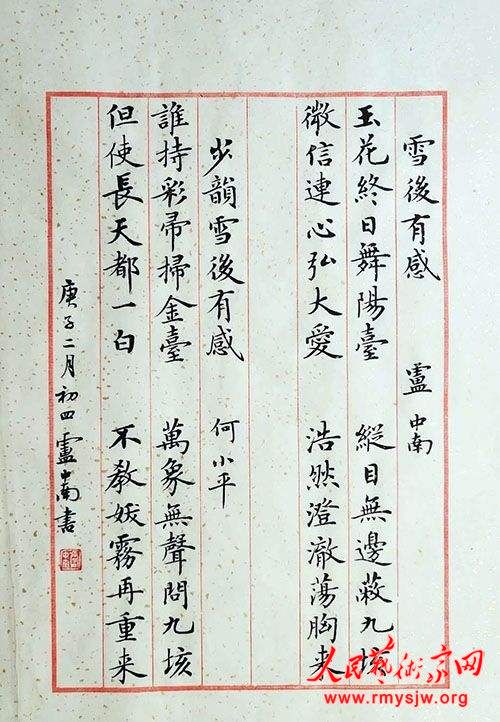 雪後有感 盧中南
玉花終日舞陽臺 縱目無邊蔽九垓
微信連心弘大愛 浩然澄澈蕩胸來
步韻雪後有感 何小平
誰持彩帚掃金臺 萬象無聲問九垓
但使長天都一白 不教妖霧再重来
庚子二月初四盧中南書
人民艺术家网
www.rmysjw.org